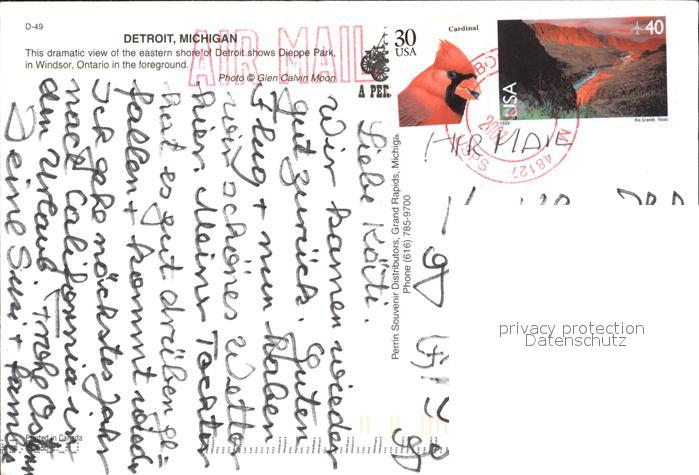 D-49
DETROIT, MICHIGAN
This dramatic view of the eastern shore of Detroit shows Dieppe Park,
in Windsor, Ontario in the foreground.
Photo © Glen Calvin Moon
AIR MAIL
30
USA
Cardinal
40
USA
1999
Rio Grande, Texas
A PER
2001
USPS
MI 48127
AIR MAIL
Liebe Käti.
Wir kamen wieder
gut zurück. Guten
Flug + nun haben
wir schönes Wetter
hier. Meiner Tochter
hat es gut drüben ge-
fallen + kommt wieder
Ich gehe nächstes Jahr
nach California i
den Urlaub. Frohe Ostern
Deine Susi + family
Perrin Souvenir Distributors, Grand Rapids, Michiga
Phone (616) 785-9700
Printed in Canada
privacy protection
Datenschutz